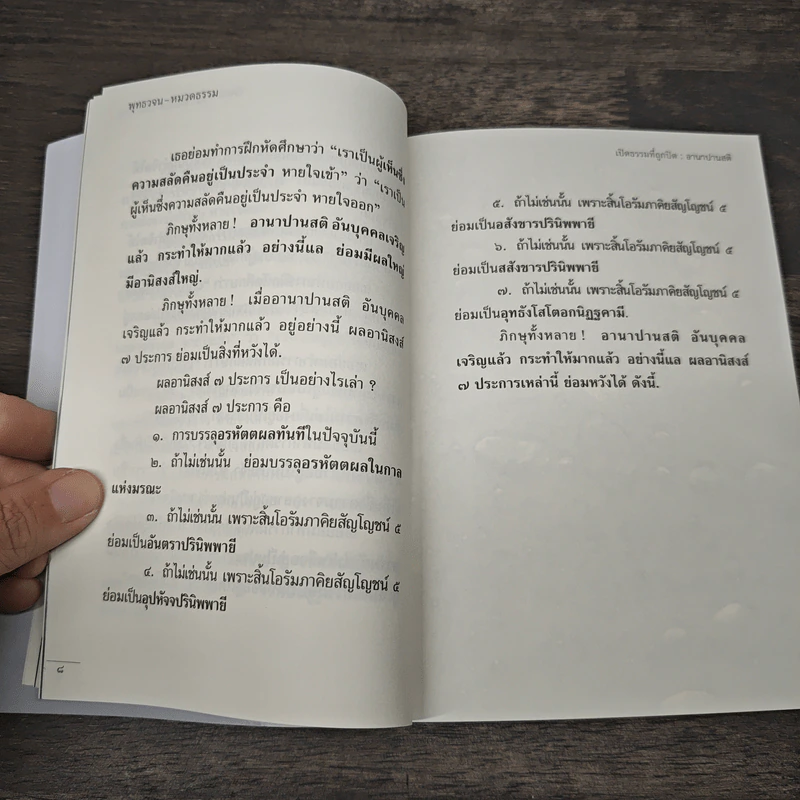 พุทธวจน-หมวดธรรม
เธอย่อมทำการฝึกหัดศึกษาว่า “เราเป็นผู้เห็นซึ่ง
ความสลัดคืนอยู่เป็นประจำ หายใจเข้า” ว่า “เราเป็น
ผู้เห็นซึ่งความสลัดคืนอยู่เป็นประจำ หายใจออก”
ภิกษุทั้งหลาย ! อานาปานสติ อันบุคคลเจริญ
แล้ว กระทำให้มากแล้ว อย่างนี้แล ย่อมมีผลใหญ่
มีอานิสงส์ใหญ่.
ภิกษุทั้งหลาย ! เมื่ออานาปานสติ อันบุคคล
เจริญแล้ว กระทำให้มากแล้ว อยู่อย่างนี้ ผลอานิสงส์
๗ ประการ ย่อมเป็นสิ่งที่หวังได้.
ผลอานิสงส์ ๗ ประการ เป็นอย่างไรเล่า ?
ผลอานิสงส์ ๗ ประการ คือ
๑. การบรรลุอรหัตตผลทันทีในปัจจุบันนี้
๒. ถ้าไม่เช่นนั้น ย่อมบรรลุอรหัตตผลในกาล
แห่งมรณะ
๓. ถ้าไม่เช่นนั้น เพราะสิ้นโอรัมภาคิยสัญโญชน์ ๕
ย่อมเป็นอันตราปรินิพพายี
๔. ถ้าไม่เช่นนั้น เพราะสิ้นโอรัมภาคิยสัญโญชน์ ๕
ย่อมเป็นอุปหัจจปรินิพพายี
๘
เปิดธรรมที่ถูกปิด : อานาปานสติ
๕. ถ้าไม่เช่นนั้น เพราะสิ้นโอรัมภาคิยสัญโญชน์ ๕
ย่อมเป็นอสังขารปรินิพพายี
๖. ถ้าไม่เช่นนั้น เพราะสิ้นโอรัมภาคิยสัญโญชน์ ๕
ย่อมเป็นสสังขารปรินิพพายี
๗. ถ้าไม่เช่นนั้น เพราะสิ้นโอรัมภาคิยสัญโญชน์ ๕
ย่อมเป็นอุทธังโสโตอกนิฏฐคามี.
ภิกษุทั้งหลาย ! อานาปานสติ อันบุคคล
เจริญแล้ว กระทำให้มากแล้ว อย่างนี้แล ผลอานิสงส์
๗ ประการเหล่านี้ ย่อมหวังได้ ดังนี้.